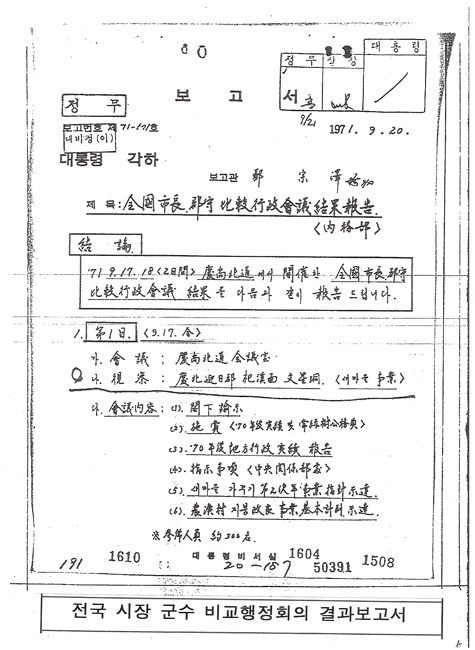 대통령
정무
보고서
9/21
1971. 9. 20.
정무
보고번호 제 71-67/호
대비정(이)
대통령 각하
보고관 鄭宗澤
제 목: 全國市長, 郡守 比較行政會議 結果報告.
<內務部>
結論
'71 9. 17. 18 <2日間> 慶尙北道에서 開催한 全國市長郡守
比較行政會議 結果를 다음과 같이 報告 드립니다.
1. 第1日. <9. 17. 金>
가. 會議 : 慶尙北道 會議室
나. 視察 : 慶北迎日郡 杞溪面 文星洞. <새마을 事業>
다. 會議內容 : (1). 閣下 諭示
(2). 施賞 <'70年度實績
(3). '70年度地方行政實績 報告
(4). 指示事項 <中央關係部處>
(5). 새마을 가꾸기 第2次年事業指針示達.
(6). 農漁村 지붕改良事業基本計劃示達.
※ 參席人員 約 300名.
대통령비서실
191 1610 20-187 1604 50391 1508
전국 시장 군수 비교행정회의 결과보고서